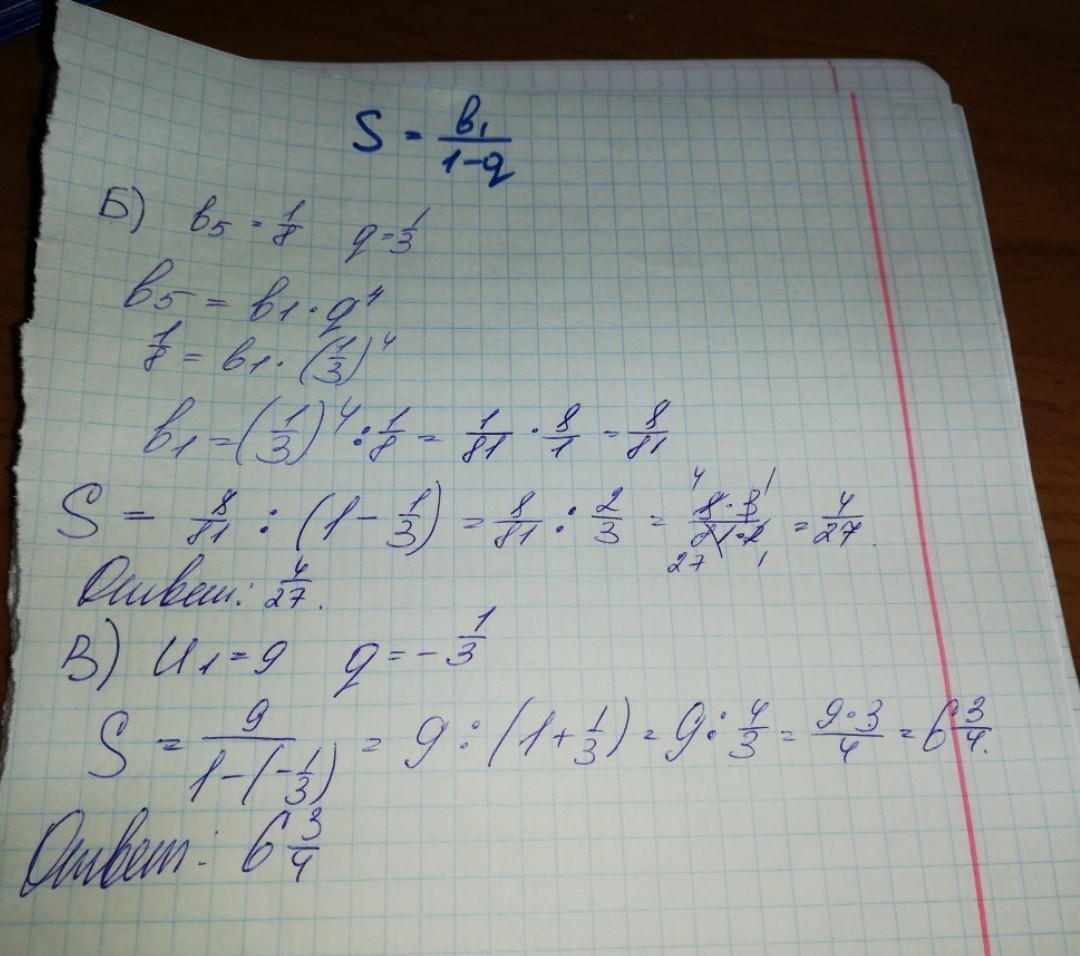 S = b₁/(1-q)
Б) b₅ = 1/8   q = 1/3
b₅ = b₁ · q⁴
1/8 = b₁ · (1/3)⁴
b₁ = (1/3)⁴ : 1/8 = 1/81 · 8/1 = 8/81
S = 8/81 : (1 - 1/3) = 8/81 : 2/3 = (8·3)/(81·2) = 4/27.
Ответ: 4/27.
В) U₁ = 9   q = -1/3
S = 9/(1-(-1/3)) = 9 : (1 + 1/3) = 9 : 4/3 = (9·3)/4 = 6 3/4.
Ответ: 6 3/4